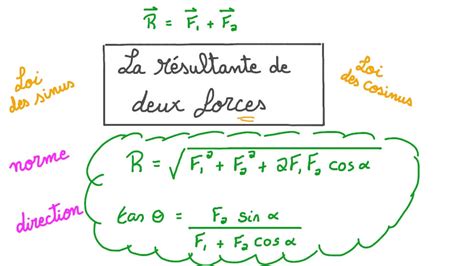 R⃗ = F⃗₁ + F⃗₂
La résultante de
deux forces
Loi
des sinus
Loi
des cosinus
norme
R = √(F₁² + F₂² + 2F₁F₂ cos α)
direction
tan Θ = F₂ sin α / (F₁ + F₂ cos α)